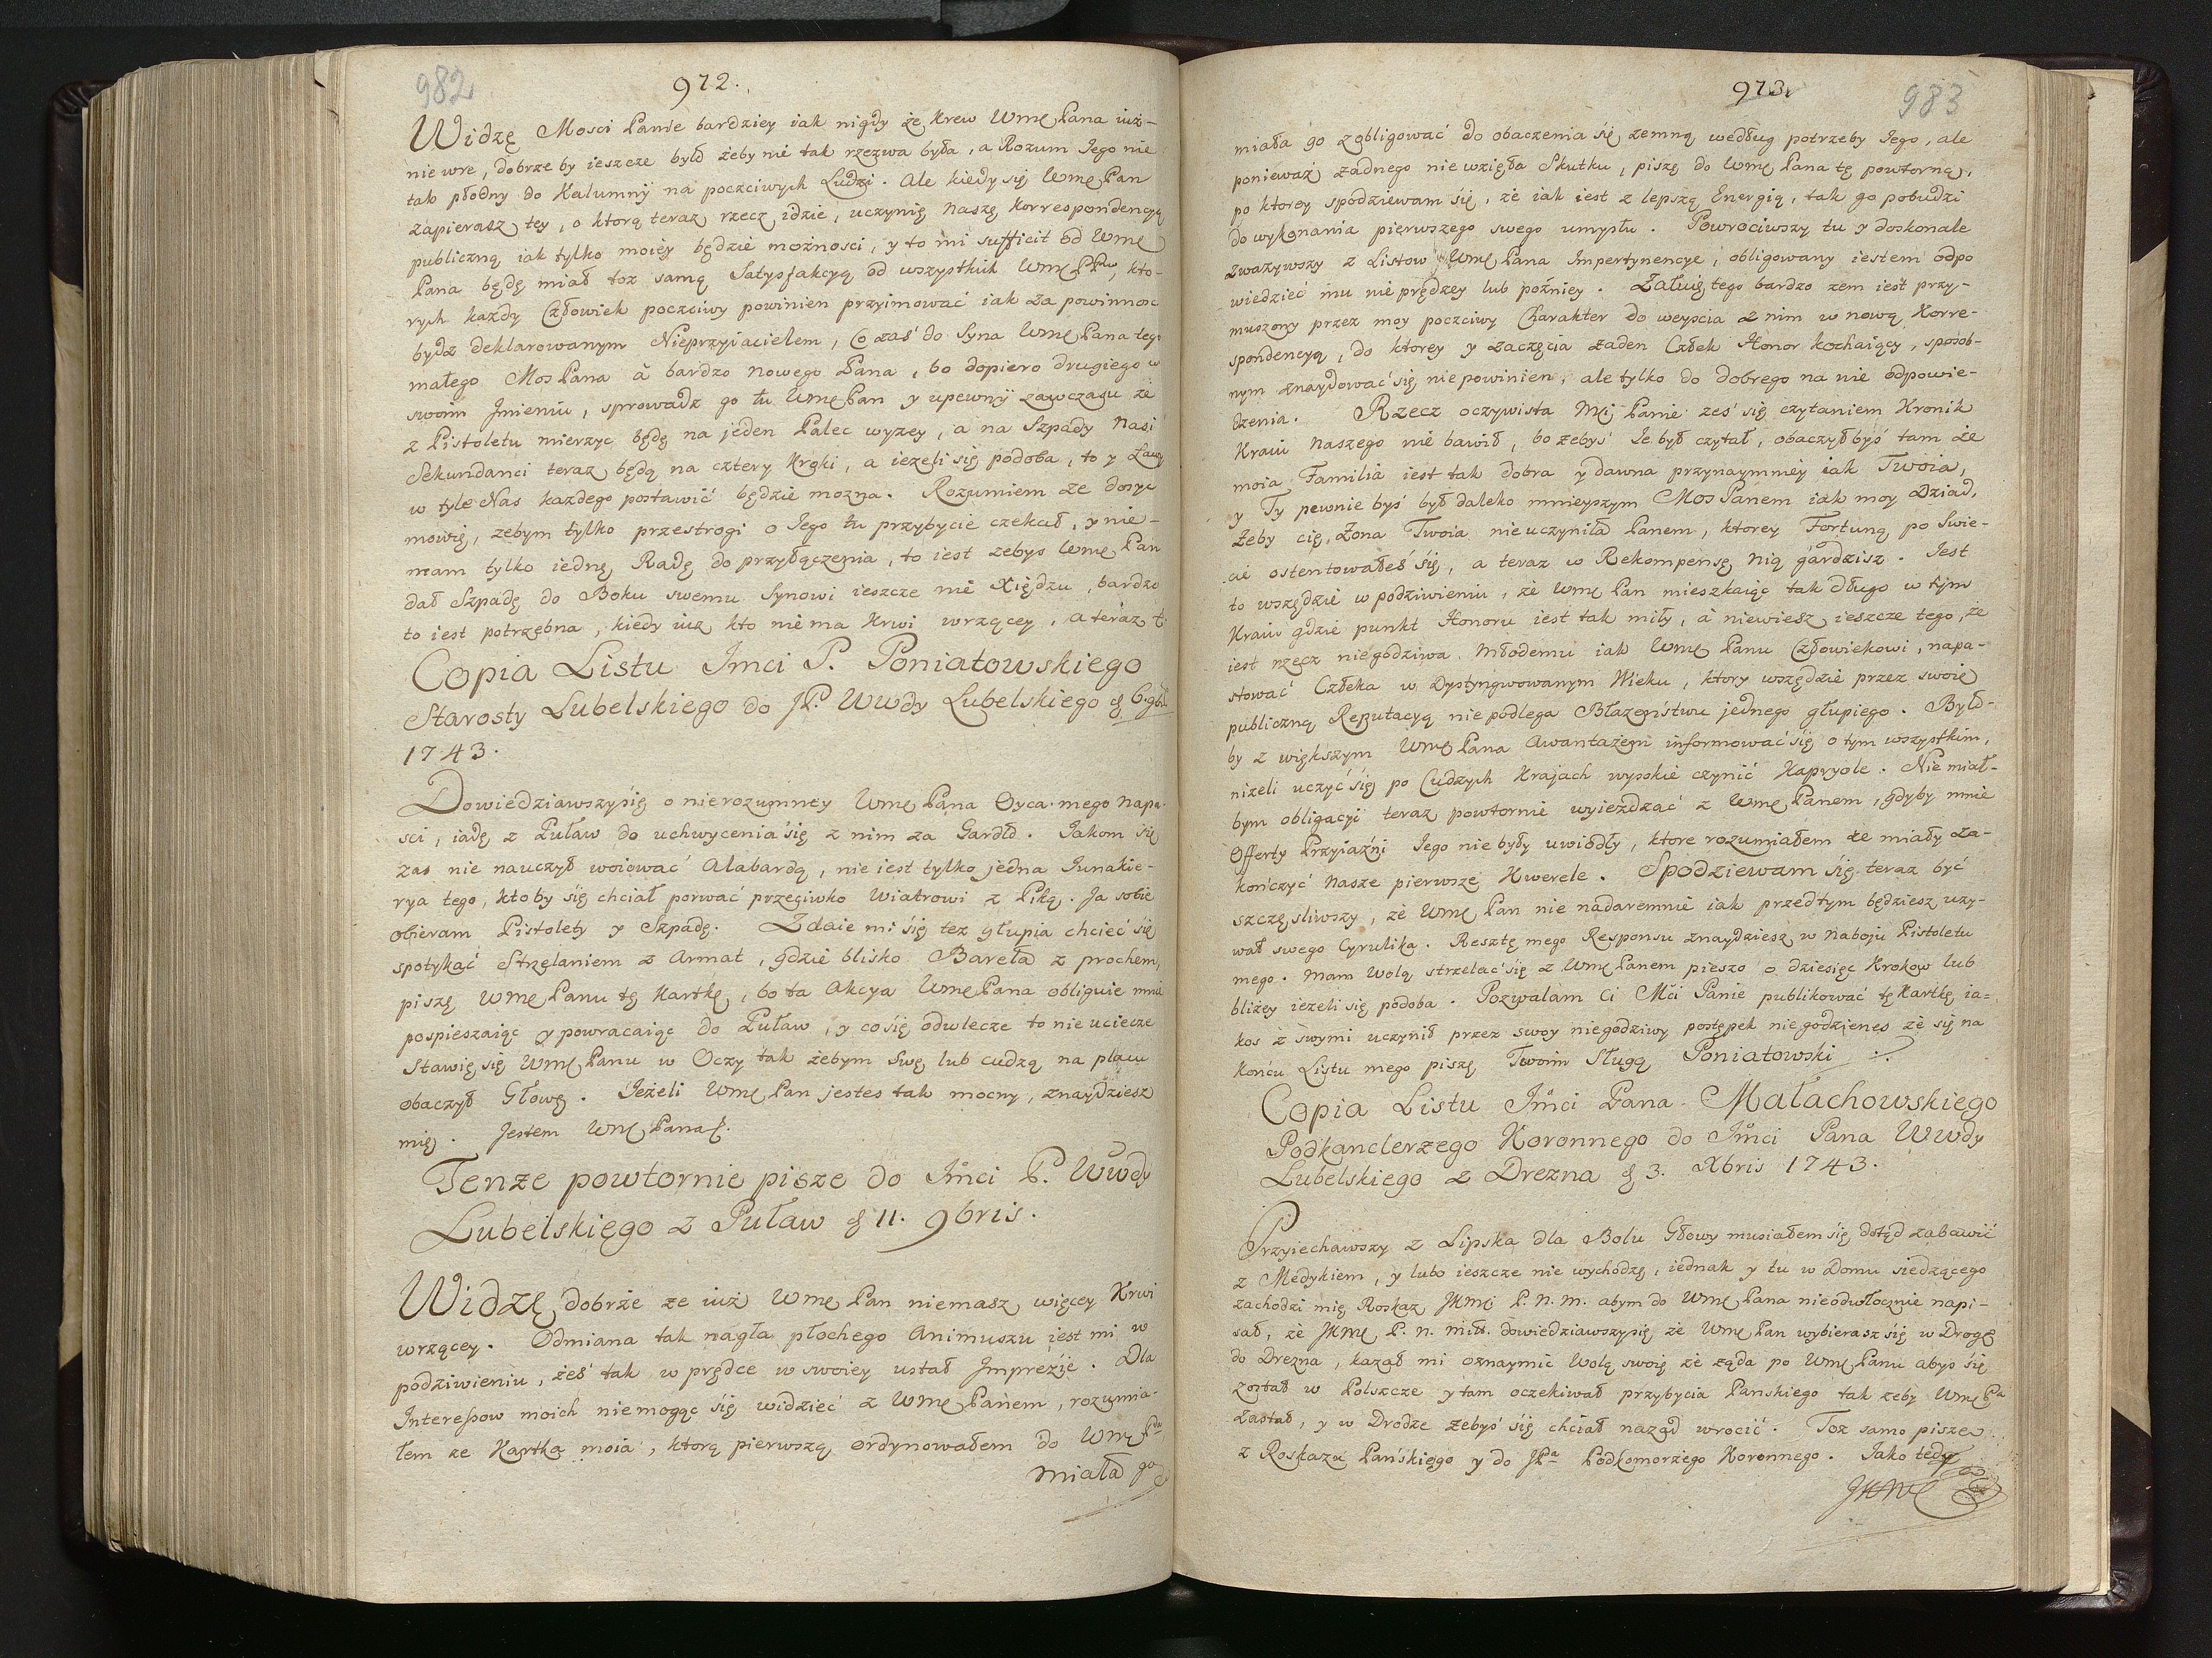 982
972.
Widzę Mosci Panie bardziey iak nigdy że Krew Wmę Pana iuż-
nie wre, dobrze by ieszcze było żeby nie tak rzezwa była, a Rozum Jego nie
tak płodny do Kalumnÿ na poczciwych Ludzi. Ale kiedy się Wmę Pan
zapierasz tey, o ktorą teraz rzecz idzie, uczynię naszę Korrespondencyą
publiczną iak tylko moiey będzie możnosci, y to mi sufficit od Wmę
Pana będę miał toż samą Satysfakcyą od wszystkich Wmę PPow, kto-
rych każdy Człowiek poczciwy powinien przyimować iak za powinnosc
bydz deklarowanym Nieprzyiacielem, Co zaś do Syna Wmę Pana tego
małego Mos Pana à bardzo nowego Pana, bo dopiero drugiego w
swoim Jmieniu, sprowadz go tu Wmę Pan y upewnÿ zawczasu że
z Pistoletu mierzyc będę na jeden Palec wyżey, a na Szpady Nasi
Sekundanci teraz będą na cztery Kroki, a ieżeli się podoba, to y Ławy
w tyle Nas każdego postawić będzie można. Rozumiem że dosyc
mowię, żebym tylko przestrogi o Jego tu przybycie czekał, y nie-
mam tylko iednę Radę do przyłączenia, to iest żebys Wmę Pan
dał Szpadę do Boku swemu Synowi ieszcze nie Xiędzu, bardzo
to iest potrzebna, kiedy iuż kto nie ma Krwi wrzącey, a teraz t.
Copia Listu Jmci P. Poniatowskiego
Starosty Lubelskiego do JP. Wwdy Lubelskiego d 6. 9bris
1743.
Dowiedziawszysię o nierozumney Wmę Pana Oyca mego napa-
sci, iadę z Puław do uchwycenia się z nim za Gardło. Jakom się
zas nie nauczył woiować Alabardą, nie iest tylko jedna Junakie-
rya tego, ktoby się chciał porwać przeciwko Wiatrowi z Piką. Ja sobie
obieram Pistolety y Szpadę. Zdaie mi się też głupia chcieć się
spotykać Strzelaniem z Armat, gdzie blisko Bareła z prochem,
piszę Wmę Panu tę Kartkę, bo ta Akcya Wmę Pana obliguie mnie
pospieszaiąc y powracaiąc do Puław, y co się odwlecze to nie uciecze
Stawię się Wmę Panu w Oczy tak żebym Swę lub cudzą na placu
obaczył Głowę. Jeżeli Wmę Pan jestes tak mocny, znaydziesz
mię. Jestem Wmę Pana &.
Tenze powtornie pisze do Jmci P. Wwdy
Lubelskięgo z Puław d 11. 9bris.
Widzę dobrże że iuż Wmę Pan niemasz więcey Krwi
wrzącey. Odmiana tak nagła płochego Animuszu jest mi w
podziwieniu, żeś tak w prędce w swoiey ustał Imprezie. Dla
Interessow moich niemogąc się widzieć z Wmę Panem, rozumia-
łem że Kartka moia, ktorą pierwszą ordynowałem do Wmę Pna
miała go
973.
983
miała go zobligować do obaczenia się zemną według potrzeby Jego, ale
ponieważ żadnego nie wzięła Skutku, piszę do Wmę Pana tę powtorną,
po ktorey spodziewam się, że iak iest z lepszą Energią, tak go pobudzi
do wykonania pierwszego swego umysłu. Powrociwszy tu y doskonale
zważywszy z Listow Wmę Pana Impertynencye, obligowany iestem odpo
wiedzieć mu nie prędzey lub poźniey. Załuię tego bardzo żem iest przy-
muszony przez moy poczciwy Charakter do weyscia z nim w nową Korre-
spondencyą, do ktorey y zaczęcia żaden Człek Honor kochaiący, sposob-
nym znaydować się nie powinien, ale tylko do dobrego na nie odpowie-
dzenia. Rzecz oczywista Mci Panie żeś się czytaniem Kronik
Kraiu naszego nie bawił, bo żebyś Je był czytał, obaczył byś tam że
moia Familia iest tak dobra y dawna przynaymniey iak Twoia,
y Ty pewnie byś był daleko mnieyszym Mos Panem iak moy Dziad,
Żeby cię Zona Twoia nie uczyniła Panem, ktorey Fortuną po Swie-
cie ostentowałeś się, a teraz w Rekompensę nią gardzisz. Jest
to wszędzie w podziwieniu, że Wmę Pan mieszkaiąc tak długo w tym
Kraiu gdzie punkt Honoru iest tak miły, à niewiesz ieszcze tego, że
iest rzecz niegodziwa Młodemu iak Wmę Panu Człowiekowi, napa-
stować Człeka w Dystyngwowanym Wieku, ktory wszędzie przez swoię
publiczną Reputacyą nie podlega Błazenstwu jednego głupiego. Było-
by z większym Wmę Pana Awantażem informować się o tym wszystkim,
niżeli uczyć się po Cudzych Krajach wysokie czynić Kapryole. Nie miał-
bym obligacyi teraz powtornie wyieżdzać z Wmę Panem, gdyby mnie
Offerty Przyiaźni Jego nie były uwiodły, ktore rozumiałem że miały za-
kończyć Nasze pierwsze Kwerele. Spodziewam się teraz być
szczęsliwszy, że Wmę Pan nie nadaremnie iak przedtym będziesz uzy-
wał swego Cyrulika. Resztę mego Responsu znaydziesz w naboju Pistoletu
mego. Mam Wolą strzelać się z Wmę Panem pieszo o dziesięc Krokow lub
bliżey ieżeli się podoba. Pozwalam Ci Mci Panie publikować tę Kartkę ia-
kos z swymi uczynił przez swoy niegodziwy postępek niegodzienes że się na
końcu Listu mego piszę Twoim Sługą Poniatowski
Copia Listu Jmci Pana Małachowskiego
Podkanclerzego Koronnego do Jmci Pana Wwdy
Lubelskiego z Drezna d 3. Xbris 1743.
Przyiechawszy z Lipska dla Bolu Głowy musiałem się dotąd zabawić
z Medykiem, y lubo ieszcze nie wychodzę, iednak y tu w Domu siedzącego
zachodzi mię Roskaz JKMci P. N. M. abym do Wmę Pana nieodwłocznie napi-
sał, że JKMć P. N. Mił. dowiedziawszysię że Wmę Pan wybierasz się w Drogę
do Drezna, kazał mi oznaymić Wolą swoię że żąda po Wmę Panu abys się
został w Polszcze y tam oczekiwał przybycia Panskiego tak żeby Wmę Pa
zastał, y w Drodze żebyś się chciał nazad wrocić. Toż samo piszę
z Roskazu Pańskięgo y do JPa Podkomorzego Koronnego. Jako tedy
JKMć